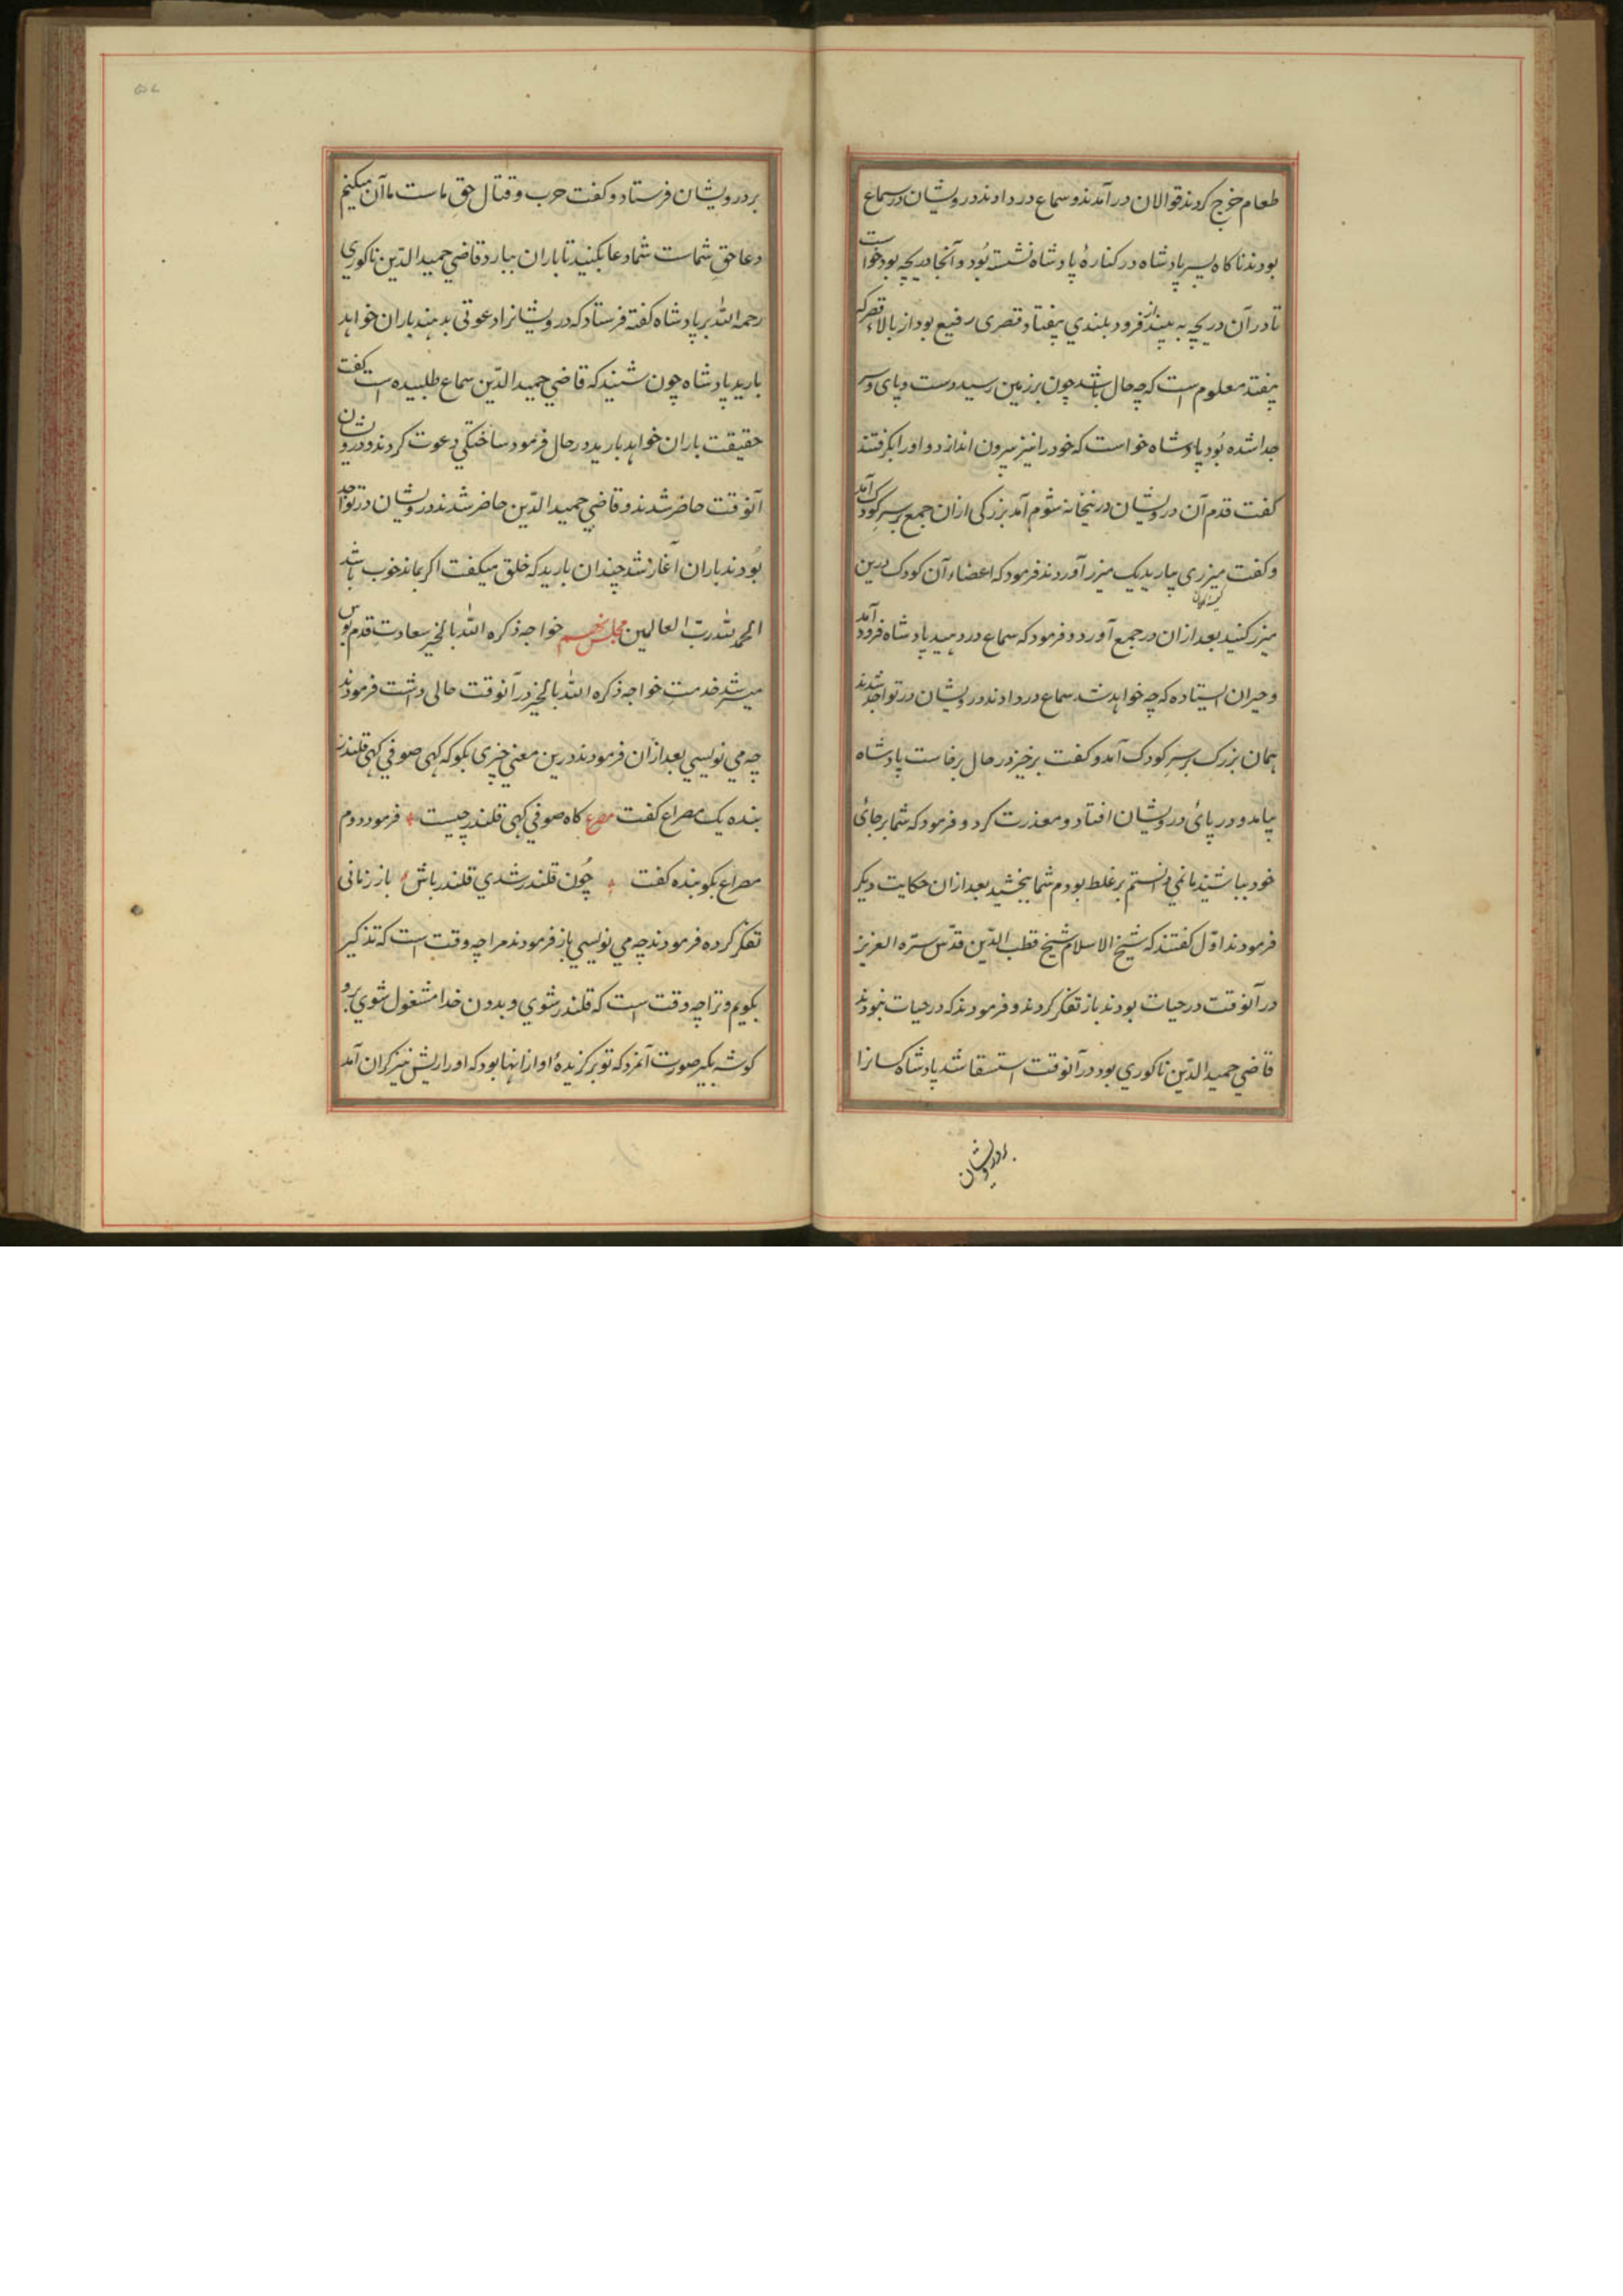 طعام خرج کردند قوالان در آمدند و سماع در دادند درویشان در سماع
بودند ناکاه پسر پادشاه در کنارهٔ پادشاه نشسته بُود و آنجا دریچه بود خواست
تا در آن دریچه به بیند از فرود بلندی بیفتاد قصری رفیع بود از بالاء قصر که
بیفتد معلوم است که چه حال باشد چون بر زمین رسید دست و پای و سر
جدا شده بُود پادشاه خواست که خود را نیز بیرون اندازد و او را بکرفتند
کفت قدم آن درویشان درینخانه شوم آمد بزرکی ازان جمع بر سرِ کودک آمد
و کفت میزری بیارید یک میزر آوردند فرمود که اعضاء آن کودک درین
میزر کنید بعد ازان در جمع آورد و فرمود که سماع در دهید پادشاه فرود آمد
و حیران ایستاده که چه خواهد شد سماع در دادند درویشان در تواجد شدند
همان بزرک بر سرِ کودک آمد و کفت برخیز در حال برخاست پادشاه
بیامد و در پائی درویشان افتاد و معذرت کرد و فرمود که شما بر جائ
خود بباشید ما نمی دانستم بر غلط بودم شما ببخشید بعد ازان حکایت دیکر
فرمودند اوّل کفتند که شیخ الاسلام شیخ قطب الدّین قدّس سرّه العزیز
در آنوقت در حیات بودند باز تفکر کردند و فرمودند که در حیات نبودند
قاضی حمید الدّین ناکوری بود در آنوقت استسقا شد پادشاه کسانرا
بر درویشان
بر درویشان فرستاد و کفت حرب و قتال حقِ ماست ما آن میکنیم
دعا حقِ شماست شما دعا بکنید تا باران ببارد قاضی حمید الدّین ناکوری
رحمه الله بر پادشاه کفته فرستاد که درویشانرا دعوتی بدهند باران خواهد
بارید پادشاه چون شنید که قاضی حمید الدّین سماع طلبیده است کفت
حقیقت باران خواهد بارید در حال فرمود ساختکی دعوت کردند و درویشان
آنوقت حاضر شدند و قاضی حمید الدّین حاضر شدند درویشان در تواجد
بُودند باران آغاز شد چندان بارید که خلق میکفت اکر بماند خوب باشد
الحمد لله ربّ العالمین مجلس پنجم خواجه ذکره الله بالخیر سعادت قدم بوس
میسر شد خدمتِ خواجه ذکره الله بالخیر در آنوقت حالی داشت فرمودند
چه می نویسی بعد ازان فرمودند درین معنی چیزی بکو که کهی صوفی کهی قلندر
بنده یک مصراع کفت مصرع کاه صوفی کهی قلندر چیست فرمود دوم
مصراع بکو بنده کفت چُون قلندر شدی قلندر باش باز زمانی
تفکر کرده فرمودند چه می نویسی باز فرمودند مرا چه وقت است که تذکیر
بکویم و ترا چه وقت است که قلندر شوی و بدون خدا مشغول شوی برو
کوشه بکیر صورت آنمرد که تو برکزیدهٔ او ازانها بود که او را ریش نیز کران آمد